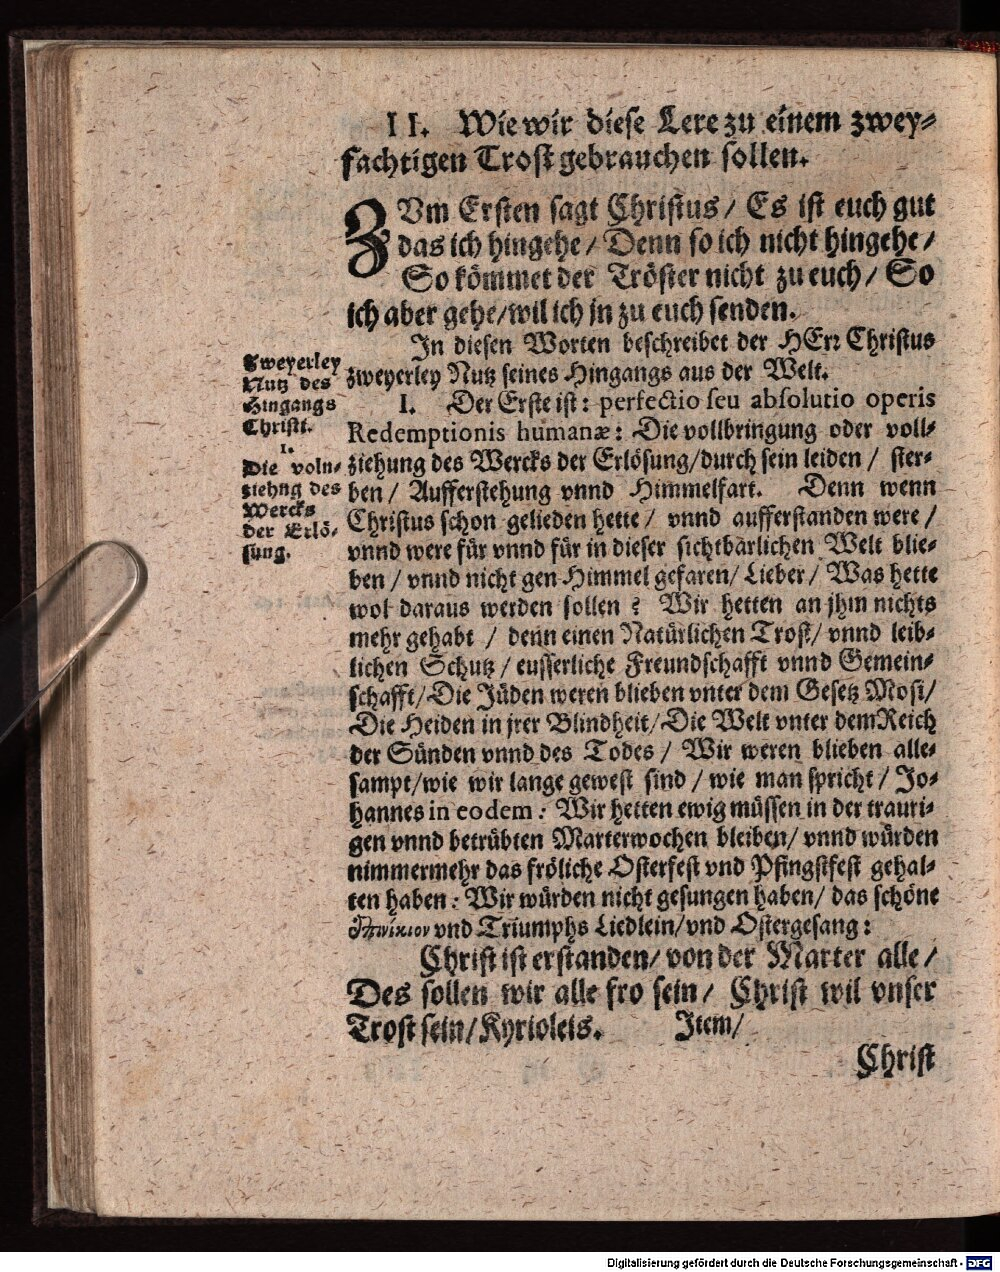 II. Wie wir diese Lere zu einem zwey-
fachtigen Trost gebrauchen sollen.
ZVm Ersten sagt Christus / Es ist euch gut
das ich hingehe / Denn so ich nicht hingehe /
So kömmet der Tröster nicht zu euch / So
ich aber gehe / wil ich jn zu euch senden.
In diesen Worten beschreibet der HErr Christus
zweyerley Nutz seines Hingangs aus der Welt.
Zweyerley
Nutz des
Hingangs
Christi.
1.
Die voln-
ziehng des
Wercks
der Erlö-
sung.
I. Der Erste ist: perfectio seu absolutio operis
Redemptionis humanæ: Die vollbringung oder voll-
ziehung des Wercks der Erlösung / durch sein leiden / ster-
ben / Aufferstehung vnnd Himmelfart. Denn wenn
Christus schon gelieden hette / vnnd aufferstanden were /
vnnd were für vnnd für in dieser sichtbarlichen Welt blie-
ben / vnnd nicht gen Himmel gefaren / Lieber / Was hette
wol daraus werden sollen? Wir hetten an jhm nichts
mehr gehabt / denn einen Natürlichen Trost / vnnd leib-
lichen Schutz / eusserliche Freundschafft vnnd Gemein-
schafft / Die Jüden weren blieben vnter dem Gesetz Mosi /
Die Heiden in jrer Blindheit / Die Welt vnter dem Reich
der Sünden vnnd des Todes / Wir weren blieben alle-
sampt / wie wir lange gewest sind / wie man spricht / Jo-
hannes in eodem: Wir hetten ewig müssen in der trauri-
gen vnnd betrübten Marterwochen bleiben / vnnd würden
nimmermehr das fröliche Osterfest vnd Pfingstfest gehal-
ten haben: Wir würden nicht gesungen haben / das schöne
ἐπινίκιον vnd Triumphs Liedlein / vnd Ostergesang:
Christ ist erstanden / von der Marter alle /
Des sollen wir alle fro sein / Christ wil vnser
Trost sein / Kyrioleis. Item /
Christ
Digitalisierung gefördert durch die Deutsche Forschungsgemeinschaft - DFG